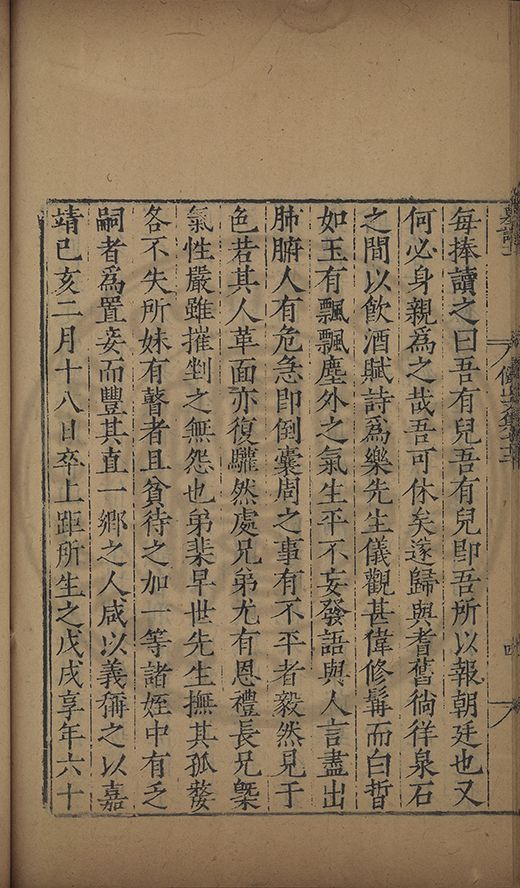 每捧讀之曰吾有兒吾有兒即吾所以報朝廷也又
何必身親爲之哉吾可休矣遂歸與耆舊徜徉泉石
之間以飲酒賦詩爲樂先生儀觀甚偉修髯而白晳
如玉有飄飄塵外之氣生平不妄發語與人言盡出
肺腑人有危急即倒囊周之事有不平者毅然見于
色若其人革面亦復驩然處兄弟尤有恩禮長兄槩
氣性嚴雖摧剉之無怨也弟棐早世先生撫其孤嫠
各不失所妹有瞽者且貧待之加一等諸姪中有乏
嗣者爲置妾而豐其直一鄉之人咸以義稱之以嘉
靖己亥二月十八日卒上距所生之戊戌享年六十